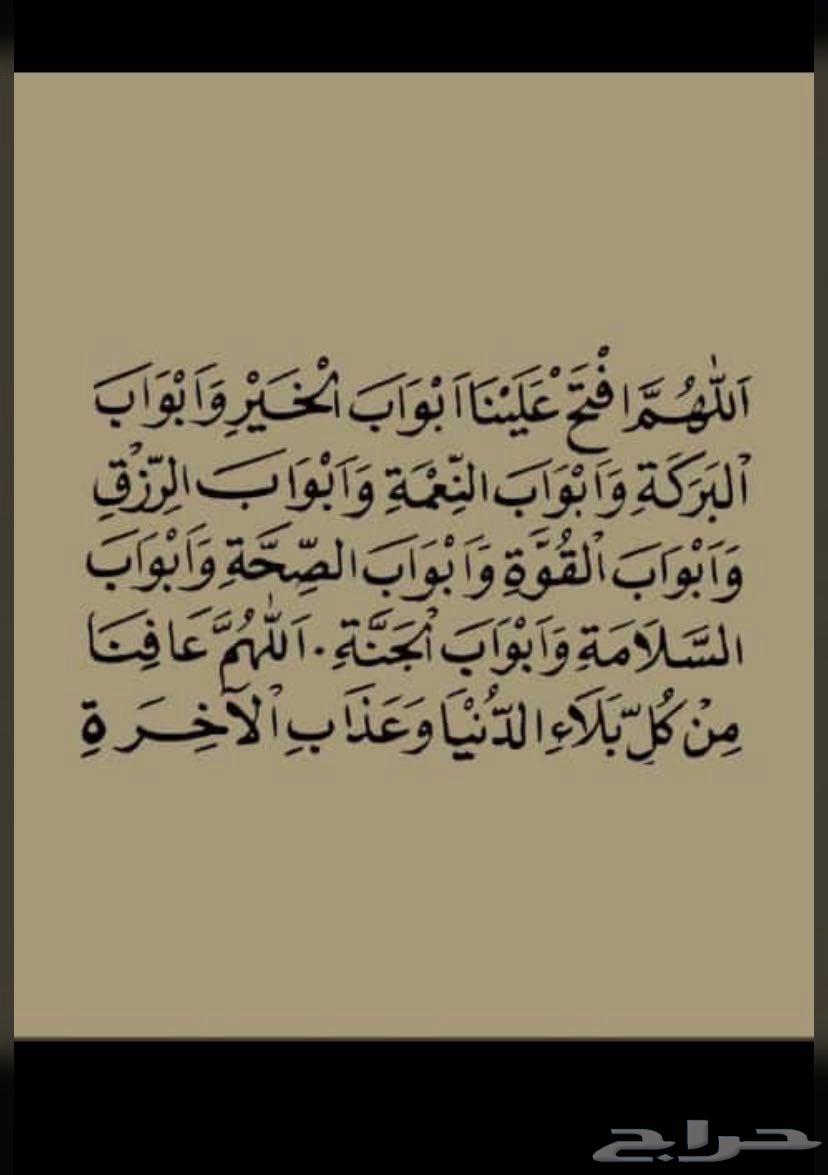 اَللّٰهُمَّ افْتَحْ عَلَيْنَا اَبْوَابَ الْخَيْرِ وَاَبْوَابَ
الْبَرَكَةِ وَاَبْوَابَ النِّعْمَةِ وَاَبْوَابَ الرِّزْقِ
وَاَبْوَابَ الْقُوَّةِ وَاَبْوَابَ الصِّحَّةِ وَاَبْوَابَ
السَّلَامَةِ وَاَبْوَابَ الْجَنَّةِ. اَللّٰهُمَّ عَافِنَا
مِنْ كُلِّ بَلَاءِ الدُّنْيَا وَعَذَابِ الْآخِرَةِ
حراج